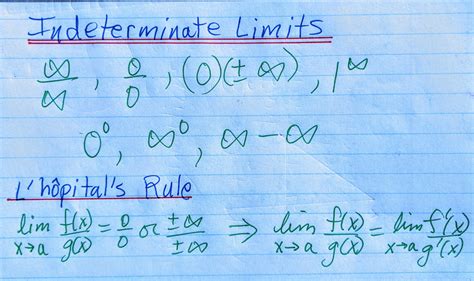 Indeterminate Limits
∞/∞ , 0/0 , (0)(±∞) , 1^∞
0^0 , ∞^0 , ∞ − ∞
L'hôpital's Rule
lim x→a f(x)/g(x) = 0/0 or ±∞/±∞ ⇒ lim x→a f(x)/g(x) = lim x→a f'(x)/g'(x)